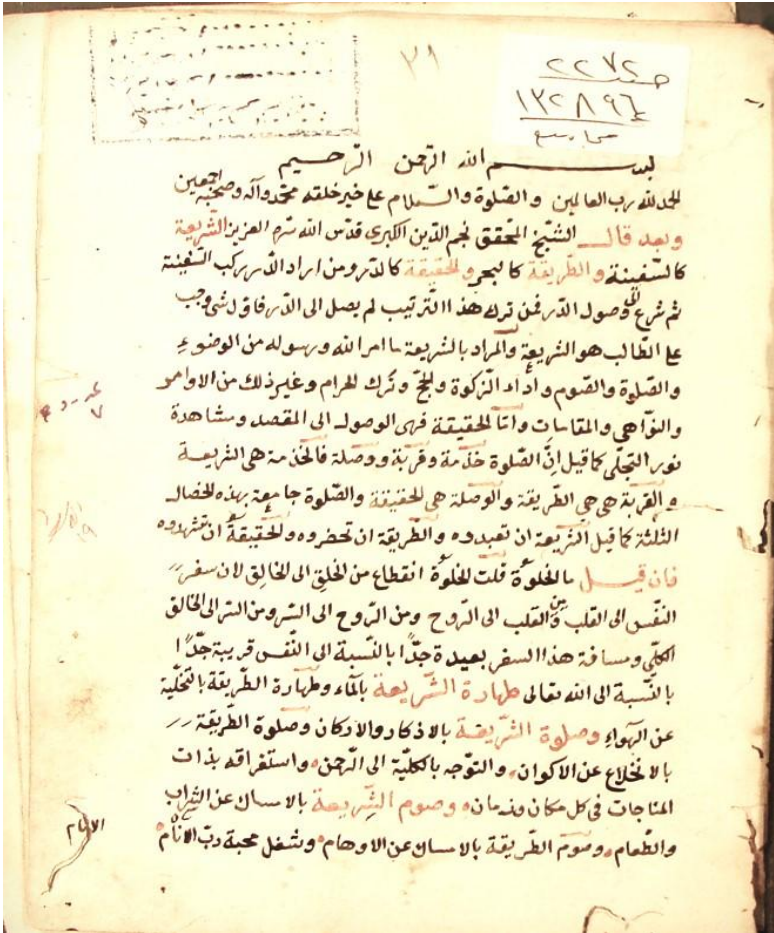 ٣١
٢٢٧٢
١٣٢٨٩٦
مجاميع
بسم الله الرّحمن الرّحيم
الحمد لله رب العالمين والصّلوة والسّلام على خير خلقه محمّد وآله وصحبه اجمعين
وبعد قال الشّيخ المحقق نجم الدّين الكبرى قدّس الله سرّه العزيز الشّريعة
كالسّفينة والطّريقة كالبحر والحقيقة كالدّر ومن اراد الدّر ركب السّفينة
ثم شرع الى وصول الدّر فمن ترك هذا التّرتيب لم يصل الى الدّر فاوّل شئ وجب
على الطّالب هو الشّريعة والمراد بالشّريعة ما امر الله ورسوله من الوضوء
والصّلوة والصّوم واداء الزّكوة والحجّ وترك الحرام وغير ذلك من الاوامر
والنّواهي والمقاسات وامّا الحقيقة فهى الوصول الى المقصد ومشاهدة
نور التجلّى كما قيل انّ الصّلوة خدمة وقربة ووصلة فالخدمة هى الشريعة
والقربة هى هى الطّريقة والوصلة هى الحقيقة والصّلوة جامعة بهذه الخصال
الثّلثة كما قيل الشّريعة ان تعبدوه والطّريقة ان تحضروه والحقيقة ان تشهدوه
فان قيل ما الخلوة قلت الخلوة انقطاع من الخلق الى الخالق لان سفر
النّفس الى القلب ومن القلب الى الرّوح ومن الرّوح الى السّر ومن السّر الى الخالق
الكلّى ومسافة هذا السفر بعيدة جدّا بالنّسبة الى النّفس قريبة جدّا
بالنّسبة الى الله تعالى طهارة الشّريعة بالماء وطهارة الطّريقة بالتّخلية
عن الهواء وصلوة الشّريعة بالاذكار والاركان وصلوة الطّريقة
بالانخلاع عن الاكوان والتّوجه بالكليّة الى الرّحمن واستغراقه بذات
المناجات فى كل مكان وزمان وصوم الشّريعة بالامساك عن الشّراب
والطّعام وصوم الطّريقة بالامساك عن الاوهام وشغل محبة ربّ الانام
الانام